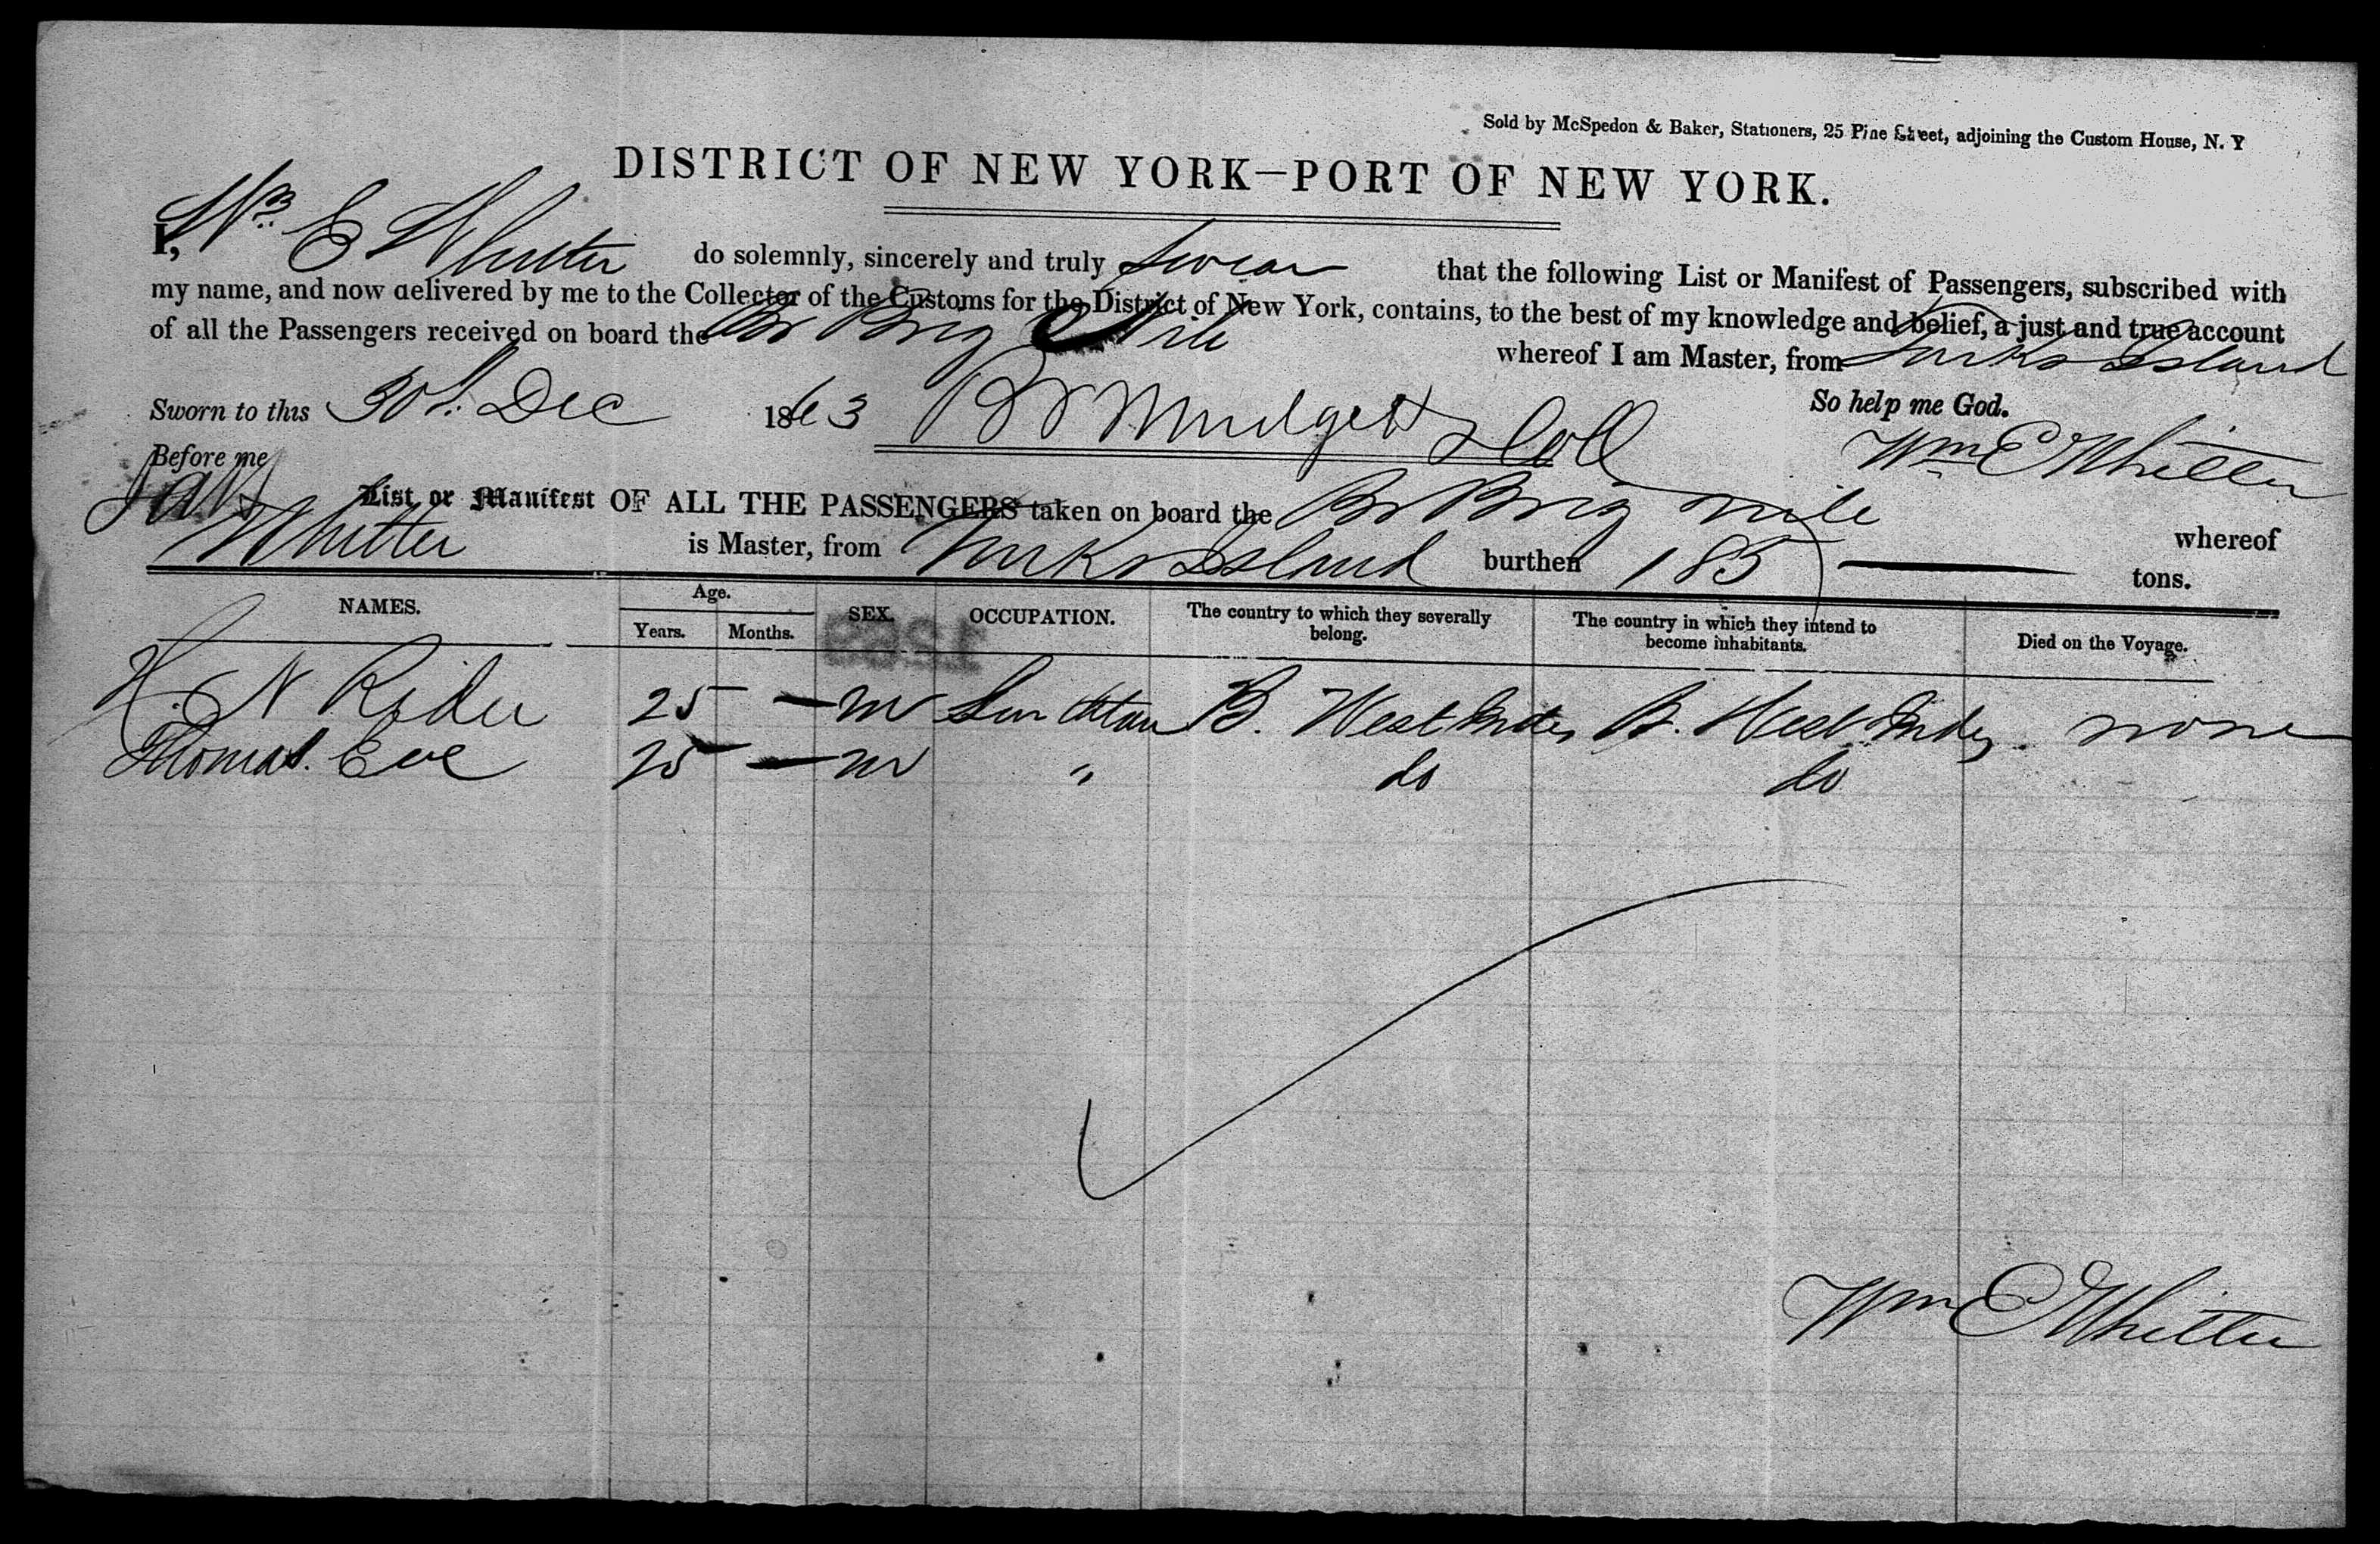 Sold by McSpedon & Baker, Stationers, 25 Pine Street, adjoining the Custom House, N. Y
DISTRICT OF NEW YORK—PORT OF NEW YORK.
I, Wm. E Whitter do solemnly, sincerely and truly swear that the following List or Manifest of Passengers, subscribed with
my name, and now delivered by me to the Collector of the Customs for the District of New York, contains, to the best of my knowledge and belief, a just and true account
of all the Passengers received on board the Br Brig Nile whereof I am Master, from Turks Island
Sworn to this 30th. Dec 1863 So help me God.
Before me Mudgett D Coll Wm E Whitter
List or Manifest OF ALL THE PASSENGERS taken on board the Br Brig Nile whereof
Whitter is Master, from Turks Island burthen 185 tons.
NAMES. Age. SEX. OCCUPATION. The country to which they severally belong. The country in which they intend to become inhabitants. Died on the Voyage.
Years. Months.
1269
H. N Rider 25 — m B. West Indies B. West Indies. none
Thomas. Eve 25 — m " do do
Wm E Whitter